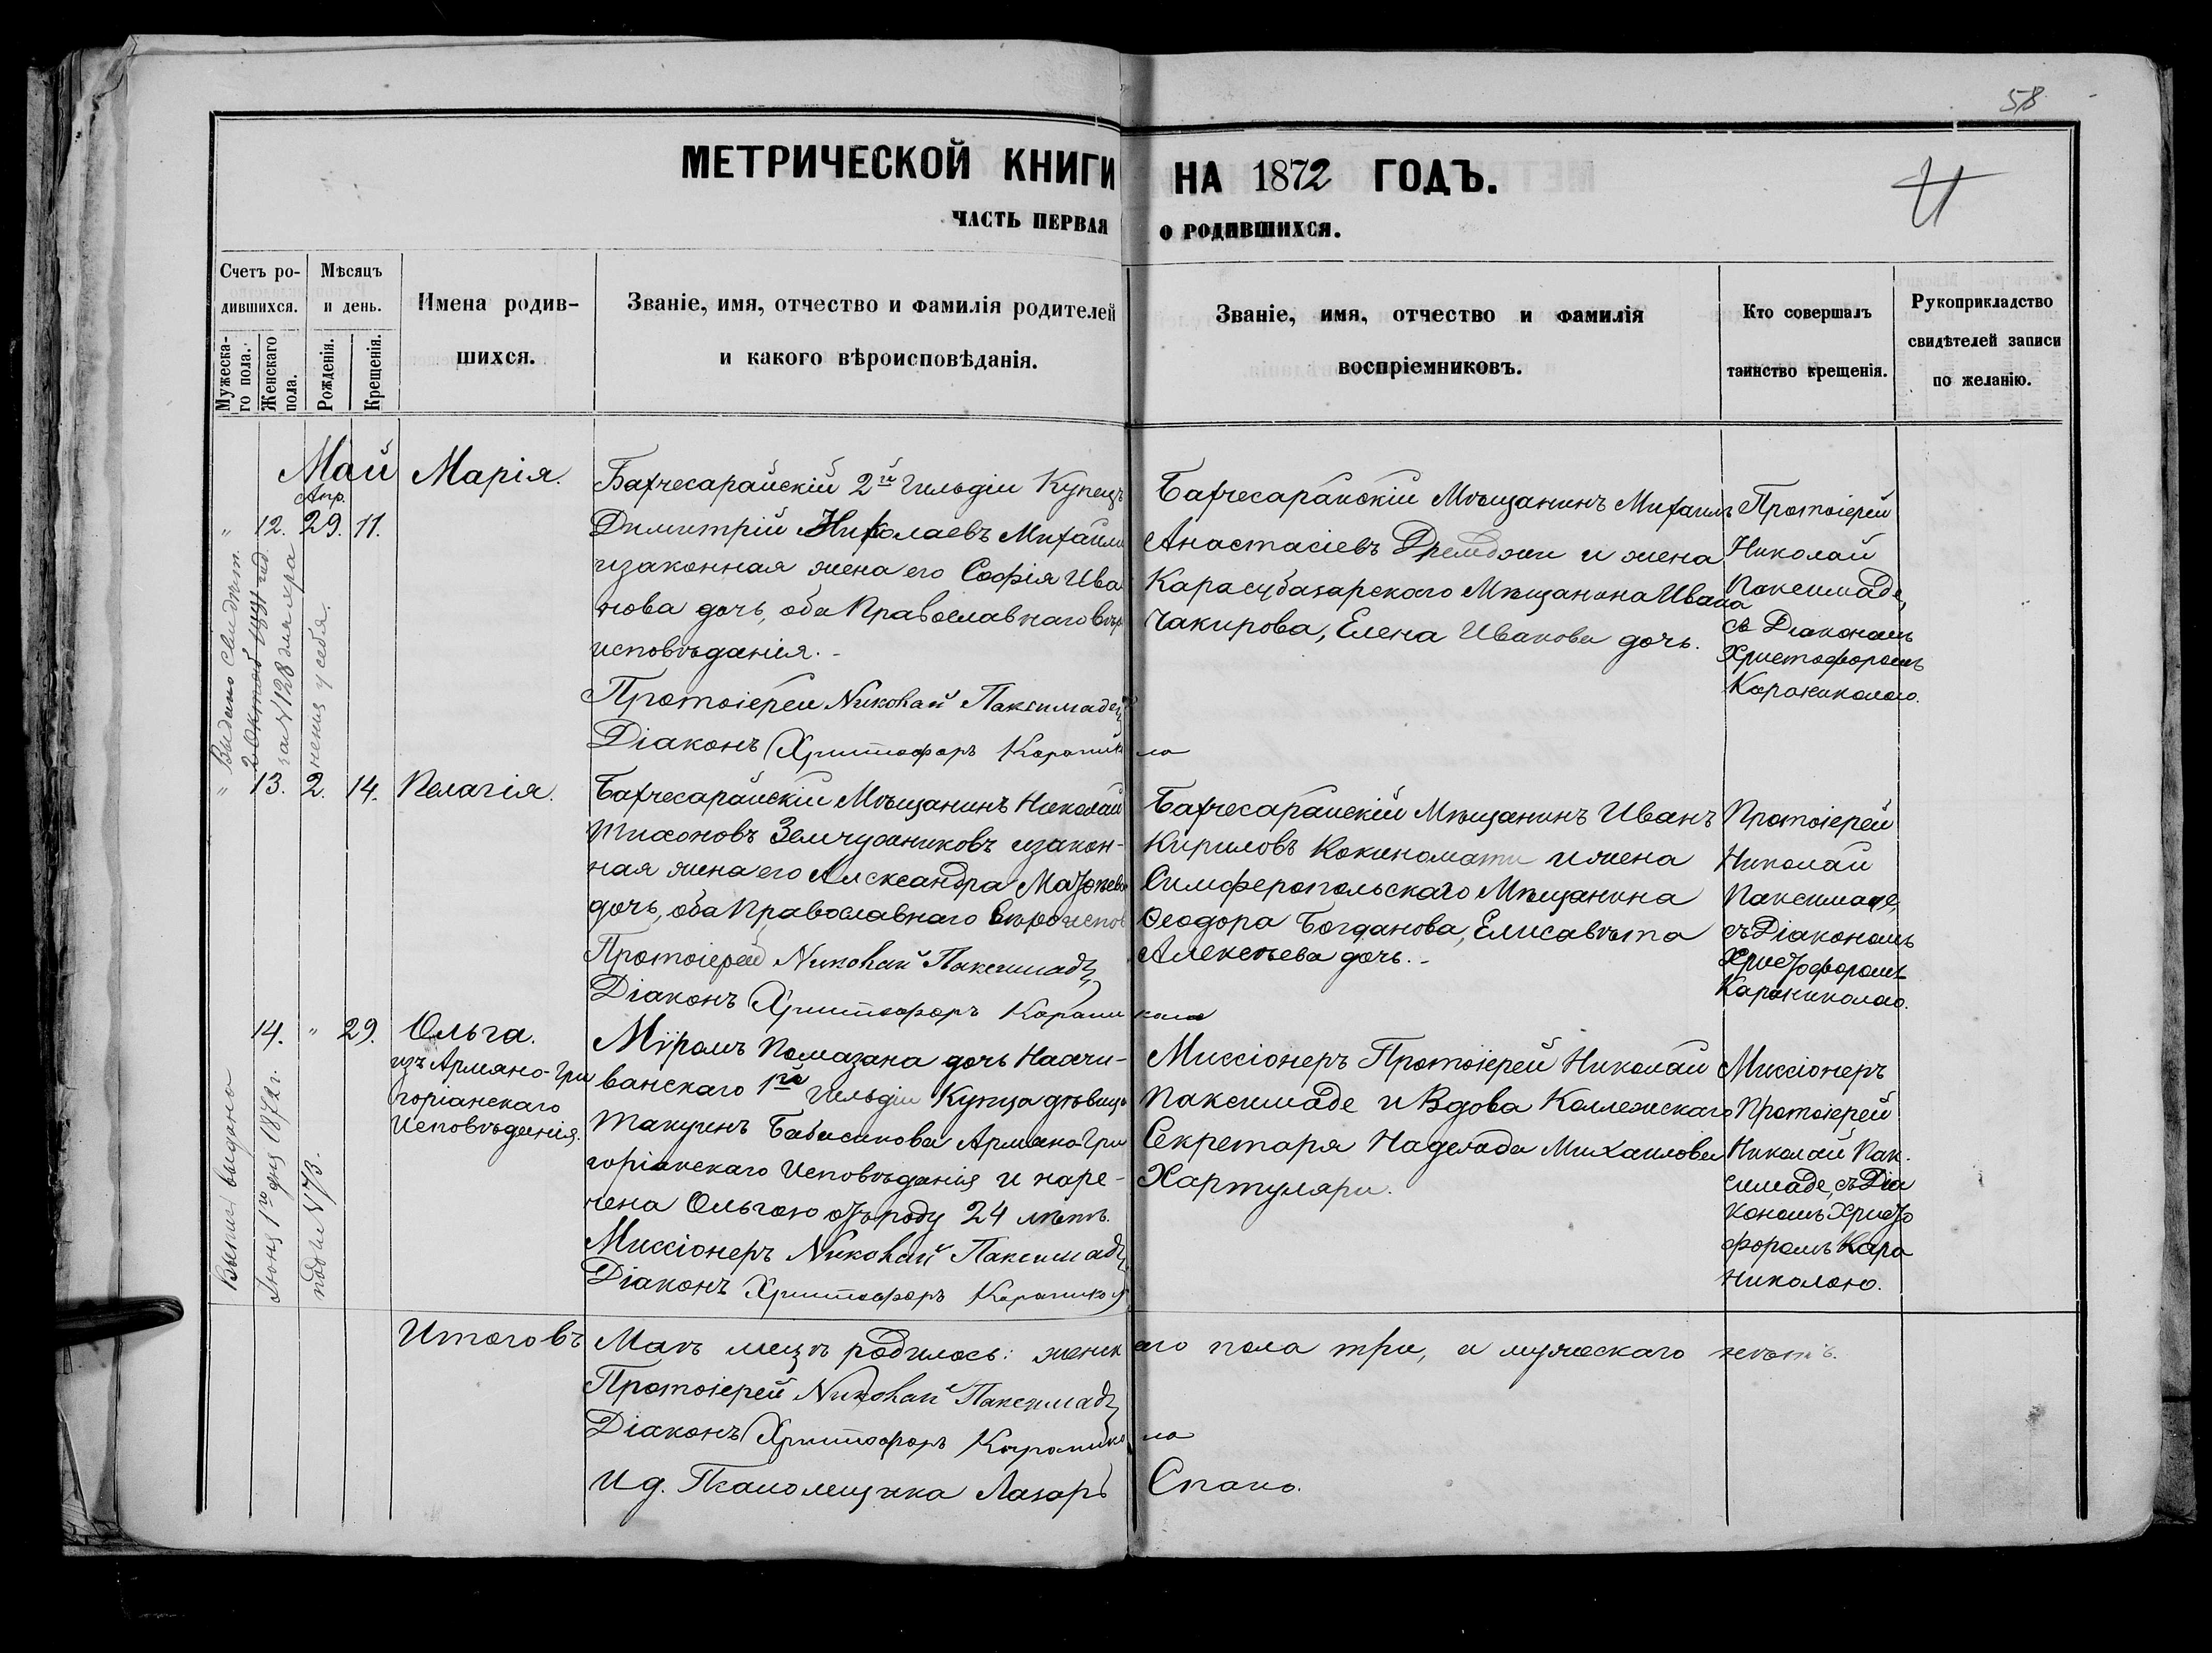 58
МЕТРИЧЕСКОЙ КНИГИ НА 1872 ГОДЪ.
ЧАСТЬ ПЕРВАЯ О РОДИВШИХСЯ.
Счетъ ро-
дившихся.
Мужеска-
го пола.
Женскаго
пола.
Мѣсяцъ
и день.
Рожденія.
Крещенія.
Имена родив-
шихся.
Званіе, имя, отчество и фамилія родителей
и какого вѣроисповѣданія.
Званіе, имя, отчество и фамилія
воспріемниковъ.
Кто совершалъ
таинство крещенія.
Рукоприкладство
свидѣтелей записи
по желанію.
Май
Апр.
" 12. 29. 11.
Марія.
Бахчесарайскій 2й Гильдіи Купецъ
Димитрій Николаевъ Михаили
изаконная жена его Софія Ива
нова дочь, оба Православнаго вѣро
исповѣданія.-
Протоіерей Николай Паксимаде
Діаконъ Христофоръ Караникола
Бахчесарайскій Мѣщанинъ Михаилъ
Анастасіевъ Дремджи и жена
Карасубазарскаго Мѣщанина Ивана
Чакирова, Елена Иванова дочь.
Протоіерей
Николай
Паксимаде,
съ Діакономъ
Христофоромъ
Караниколою.
Выдано свидѣт.
за №128 для хра
ненія у себя.
" 13. 2. 14.
Пелагія.
Бахчесарайскій Мѣщанинъ Николай
Тихоновъ Земчужниковъ изакон-
ная жена его Александра Матѳеева
дочь, оба Православнаго вѣроиспов
Протоіерей Николай Паксимаде
Діаконъ Христофоръ Караникола
Бахчесарайскій Мѣщанинъ Иванъ
Кириловъ Кокиномати и жена
Симферопольскаго Мѣщанина
Ѳеодора Богданова, Елисавѣта
Алексѣева дочь.-
Протоіерей
Николай
Паксимаде,
съ Діакономъ
Христофоромъ
Караниколою.
14. " 29.
Ольга.
изъ Армяно-Гри
горіанскаго
Исповѣданія.
Мѵромъ Помазана дочь Нахчи-
ванскаго 1й Гильдіи Купца дѣвица
Такугинъ Бабасинова Армяно-Гри
горіанскаго Исповѣданія и наре-
чена Ольгою отъ роду 24 лѣтъ.
Миссіонеръ Николай Паксимаде
Діаконъ Христофоръ Караникол
Миссіонеръ Протоіерей Николай
Паксимаде и Вдова Коллежскаго
Секретаря Надежда Михаилова
Хартуляри.
Миссіонеръ
Протоіерей
Николай Пак-
симаде, съ Діа
кономъ Христо
форомъ Кара
николою.
Выпись выдана
Іюня 1го дня 1872 г.
подъ №73.
Итого въ Маѣ мцѣ родилось: женскаго пола три, а мужескаго нѣтъ.
Протоіерей Николай Паксимаде
Діаконъ Христофоръ Караникола
И д. Псаломщика Лазарь Спано.